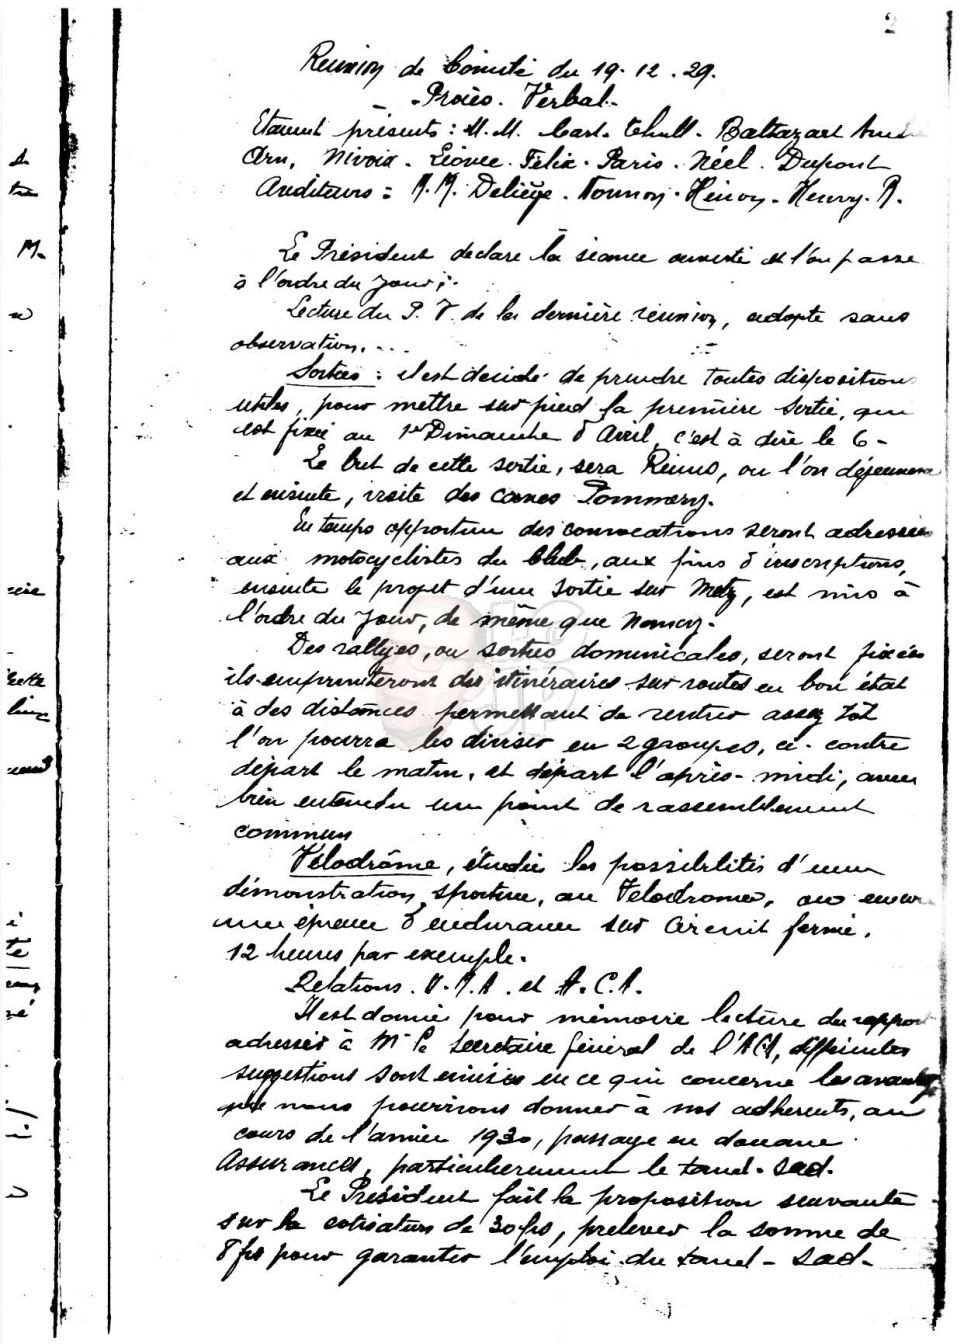 2
Réunion de Comité du 19.12.29.
- Procès. Verbal -
Etaient présents : M.M. Carl. Thull. Baltazart André
Arn, Nivoix. Liovee. Félix. Paris. Néel. Dupont
Auditeurs : M.M. Deliège. Tournoy. Henry. R.
Le Président declare la séance ouverte et l'on passe
à l'ordre du Jour ;.
Lecture du P.V. de la dernière reunion, adopte sans
observation. ...
Sorties : il est decidé de prendre toutes disposition
utiles, pour mettre sur pied la première sortie, qui
est fixée au 1er Dimanche d'Avril, c'est à dire le 6 -
Le but de cette sortie, sera Reims, ou l'on déjeunera
et ensuite, visite des caves Pommery.
En temps opportun des convocations seront adressées
aux motocyclistes du Club, aux fins d'inscriptions,
ensuite le projet d'une sortie sur Metz, est mis à
l'ordre du Jour, de même que Nancy.
Des rallyes, ou sorties dominicales, seront fixées
ils emprunteront des itinéraires sur routes en bon état
à des distances permettant de rentrer assez tôt
l'on pourra les diviser en 2 groupes, ci-contre
départ le matin, et départ l'après-midi, avec
bien entendu un point de rassemblement
commun
Vélodrôme, étudier les possibilités d'une
démonstration sportive, au Velodrome, ou encore
une épreuve d'endurance sur Circuit fermé,
12 heures par exemple.
Relations. U.M.A. et A.C.A.
Il est donné pour mémoire lecture du rapport
adressé à Mr le Secretaire Général de l'ACA, différentes
suggestions sont émises en ce qui concerne les avantages
que nous pourrions donner à nos adherents, au
cours de l'année 1930, passage en douane
Assurances, particulièrement le tand-sad.
Le Président fait la proposition suivante
sur la cotisation de 30 frs, prelever la somme de
8 frs pour garantir l'emploi du tand-sad.